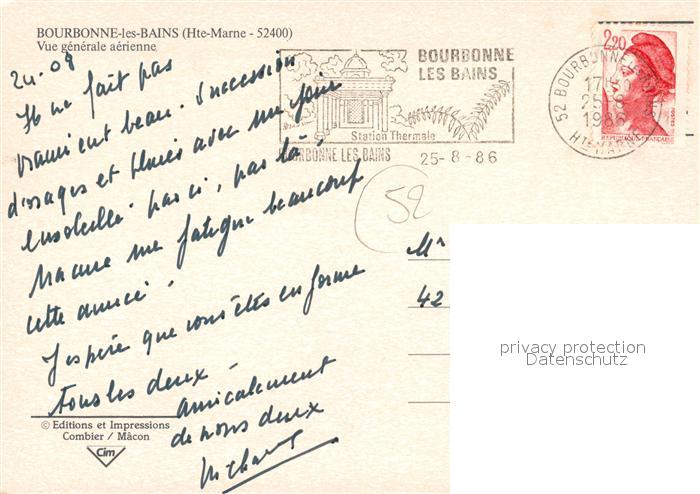 BOURBONNE-les-BAINS (Hte-Marne - 52400)
Vue générale aérienne
24.08
Il ne fait pas
vraiment beau. Succession
d'orages et pluies avec un jour
ensoleillé par ci, par là,
ma cure me fatigue beaucoup
cette année.
J'espère que vous êtes en forme
tous les deux -
amicalement
de nous deux
© Editions et Impressions
Combier / Mâcon
Cim
BOURBONNE
LES BAINS
Station Thermale
BOURBONNE LES BAINS 25-8-86
52 BOURBONNE-LES-BAINS
25-8
1986
HTE-MARNE
2,20
52
Mr
42
privacy protection
Datenschutz